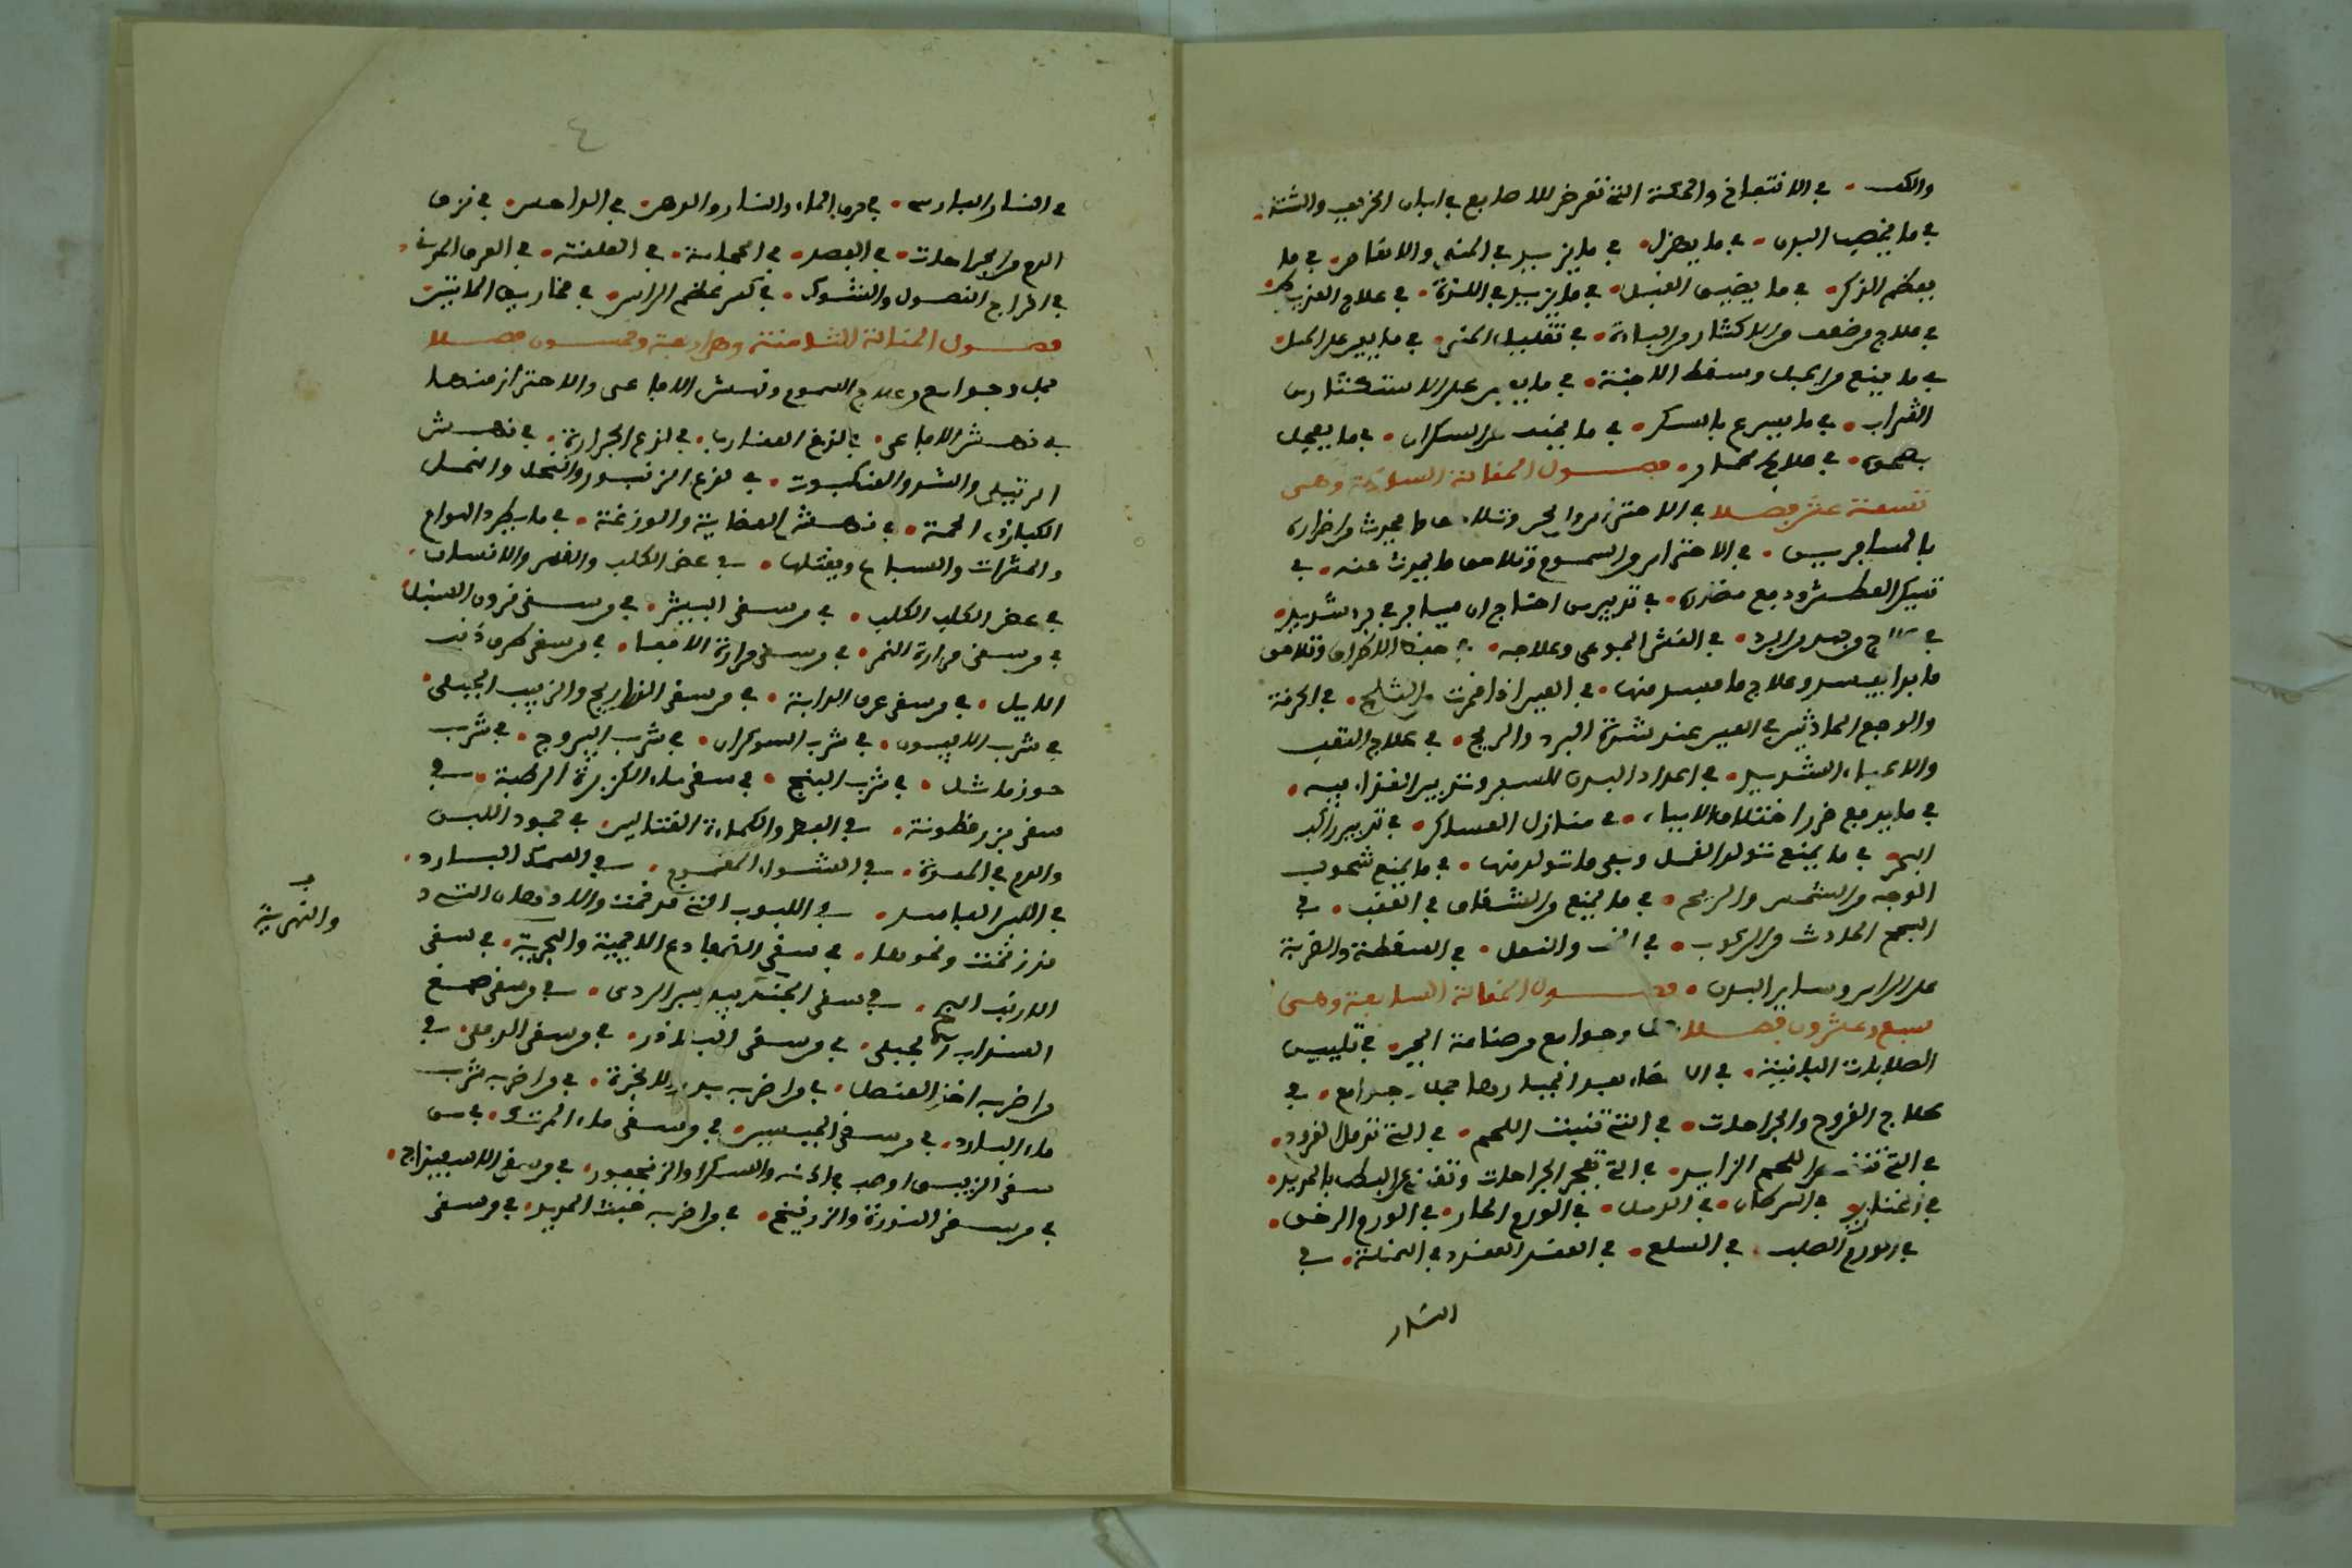 والكف • في الانتفاخ والحكة التي تعرض للاصابع في ابان الخريف والشتا •
في ما يخصب البدن • في ما يهزل • في ما يزيد في المني والانعاظ • في ما
يعظم الذكر • في ما يضيق القبل • في ما يزيد في اللذة • في علاج العذيوط •
في علاج من ضعف من الاكثار من الباه • في تقليل المني • في ما يعين على الحبل •
في ما يمنع من الحبل ويسقط الاجنة • في ما يعين على الاستكثار من
الشراب • في ما يسرع بالسكر • في ما يخفف عن السكران • في ما يعجل
بصحوه • في علاج الخمار • فصول المقالة السادسة وهي
تسعة عشر فصلا في الاحتراس من الحر وتلاحق ما يحدث من اضراره
بالمسافرين • في الاحتراس من السموم وتلاحق ما يحدث عنه • في
تسكين العطش ودفع مضرته • في تدبير من احتاج ان يسافر في برد شديد •
في علاج من جمد من البرد • في الغشي الجوعي وعلاجه • في حفظ الاطراف وتلاحق
ما بدا يفسد وعلاج ما فسد منها • في العين اذا قمرت من الثلج • في الحرقة
والوجع الحادثين في العين عند شدة البرد والريح • في علاج التعب
والاعياء الشديد • في اعداد البدن للسفر وتدبير الغذاء فيه •
في ما يدفع ضرر اختلاف المياه • في منازل العساكر • في تدبير راكب
البحر في ما يمنع تولد القمل وينفي ما تولد منها • في ما يمنع شحوب
الوجه من الشمس والريح • في ما يمنع من الشقاق في العقب • في
السحج الحادث من الركوب • في الخف والنعل • في السقطة والضربة
على الراس وساير البدن • فصول المقالة السابعة وهي
سبع وعشرون فصلا جمل وجوامع من صناعة الجبر • في تليين
الصلابات الباقية في الاعضاء بعد انجبارها جمل وجوامع • في
علاج القروح والجراحات • في التي تنبت اللحم • في التي تدمل القروح •
في التي تنقص اللحم الزايد • في التي تفجر الجراحات وتغني عن البط بالحديد •
في الخنازير • في السرطان • في الدمل • في الورم الحار • في الورم الرخو •
في الورم الصلب • في السلع • في العقد الغددية • في النملة • في
النار
٤
في النار الفارسي • في حرق الماء والنار والدهن • في الداحس • في نزف
الدم من الجراحات • في الفصد • في الحجامة • في العلقة • في العرق المدني •
في اخراج النصول والشوك • في كسر عظم الراس • في مخاريق الحانين
فصول المقالة الثامنة وهي اربعة وخمسون فصلا
جمل وجوامع وعلاج السموم ونهش الافاعي والاحتراز منها
في نهش الافاعي • في لذع العقارب • في لذع الجرارة • في نهش
الرتيلى والشبث والعنكبوت • في لذع الزنبور والنحل والنمل
الكبار ذي الحمة • في نهش العظاية والوزغة • في ما يطرد الهوام
والحشرات والسباع ويقتلها • في عض الكلب والفهد والانسان •
في عض الكلب الكلب • في من سقي البيش • في من سقي قرون السنبل •
في من سقي مرارة النمر • في من سقي مرارة الافعى • في من سقي طرف ذنب
الايل • في من سقي عرق الدابة • في من سقي الذراريح والزبيب الجبلي •
في شرب الافيون • في شرب الشوكران • في شرب اليبروح • في شرب
جوز ماثل • في شرب البنج • في سقي ماء الكزبرة الرطبة • في
سقي بزر قطونة • في الفطر والكماة القتالين • في جمود اللبن
والدم في المعدة • في الشواء المغموم • في السمك البارد •
في اللبن الفاسد • في اللبوب التي قد زنخت والادهان التي
قد زنخت ونحوها • في سقي الضفادع الاجمية والبحرية • في سقي
والنهرية
الارنب البحري • في سقي الجندبيدستر الردي • في من سقي صمغ
السذاب الجبلي • في من سقي البلاذر • في من سقي الدفلى • في
من اضر به اخذ العنصل • في من اضر به • في من اضر به شرب
ماء البارد • في من سقي الجبسين • في من سقي ماء المرتك • في من
سقي الزيبق • في من سقي الاسفيذاج •
في من سقي النورة والزرنيخ • في من اضر به خبث الحديد • في من سقي